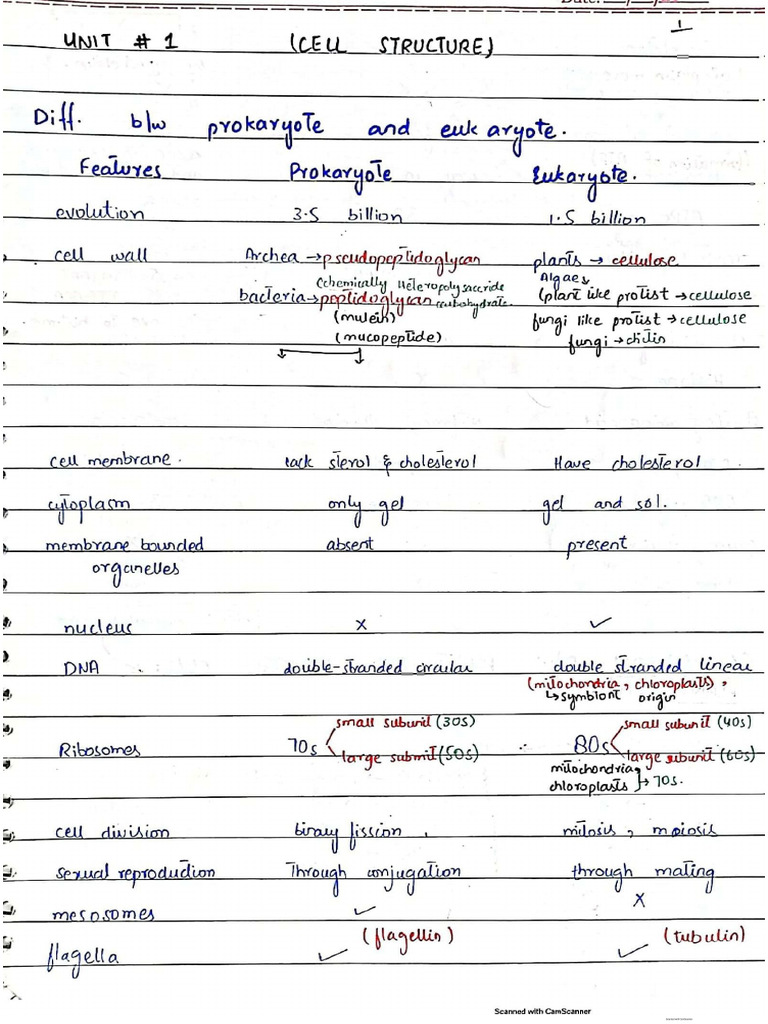 Date:
1
UNIT # 1 (CELL STRUCTURE)
Diff. b/w prokaryote and eukaryote.
Features Prokaryote Eukaryote.
evolution 3.5 billion 1.5 billion
cell wall Archea → pseudopeptidoglycan plants → cellulose
(chemically Heteropolysaccride Algae↓
bacteria → peptidoglycan carbohydrate. (plant like protist → cellulose
(mulein) fungi like protist → cellulose
(mucopeptide) fungi → chitin
cell membrane. lack sterol & cholesterol Have cholesterol
cytoplasm only gel gel and sol.
membrane bounded absent present
organelles
nucleus x ✓
DNA . double-stranded circular double stranded linear
(mitochondria, chloroplasts),
↳ symbiont origin
small subunit (30s) small subunit (40s)
Ribosomes 70s 80s
large submit (50s) large subunit (60s)
mitochondria
chloroplasts }→ 70s.
cell division binary fission, mitosis, meiosis
sexual reproduction Through conjugation through mating
mesosomes ✓ X
flagella ✓ (flagellin) ✓ (tubulin)
Scanned with CamScanner